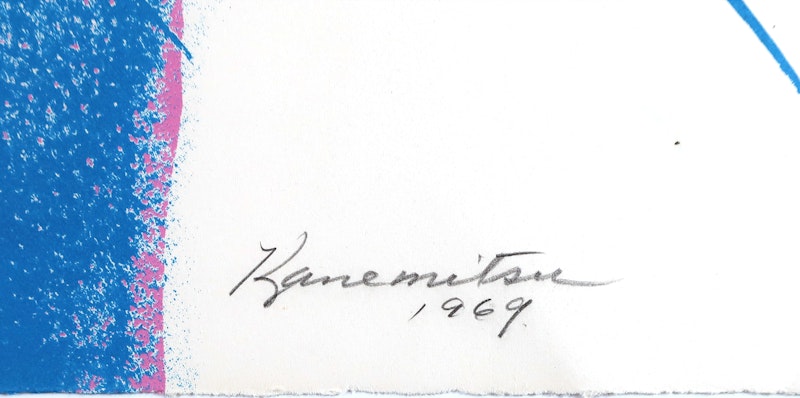 Kanemitsu
1969.